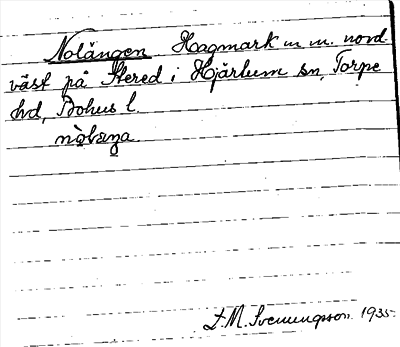 Nolängen Hagmark m m. nord-
väst på Stered i Hjärtum sn, Torpe
hd, Bohus l.
J. M. Svenungsson. 1935.